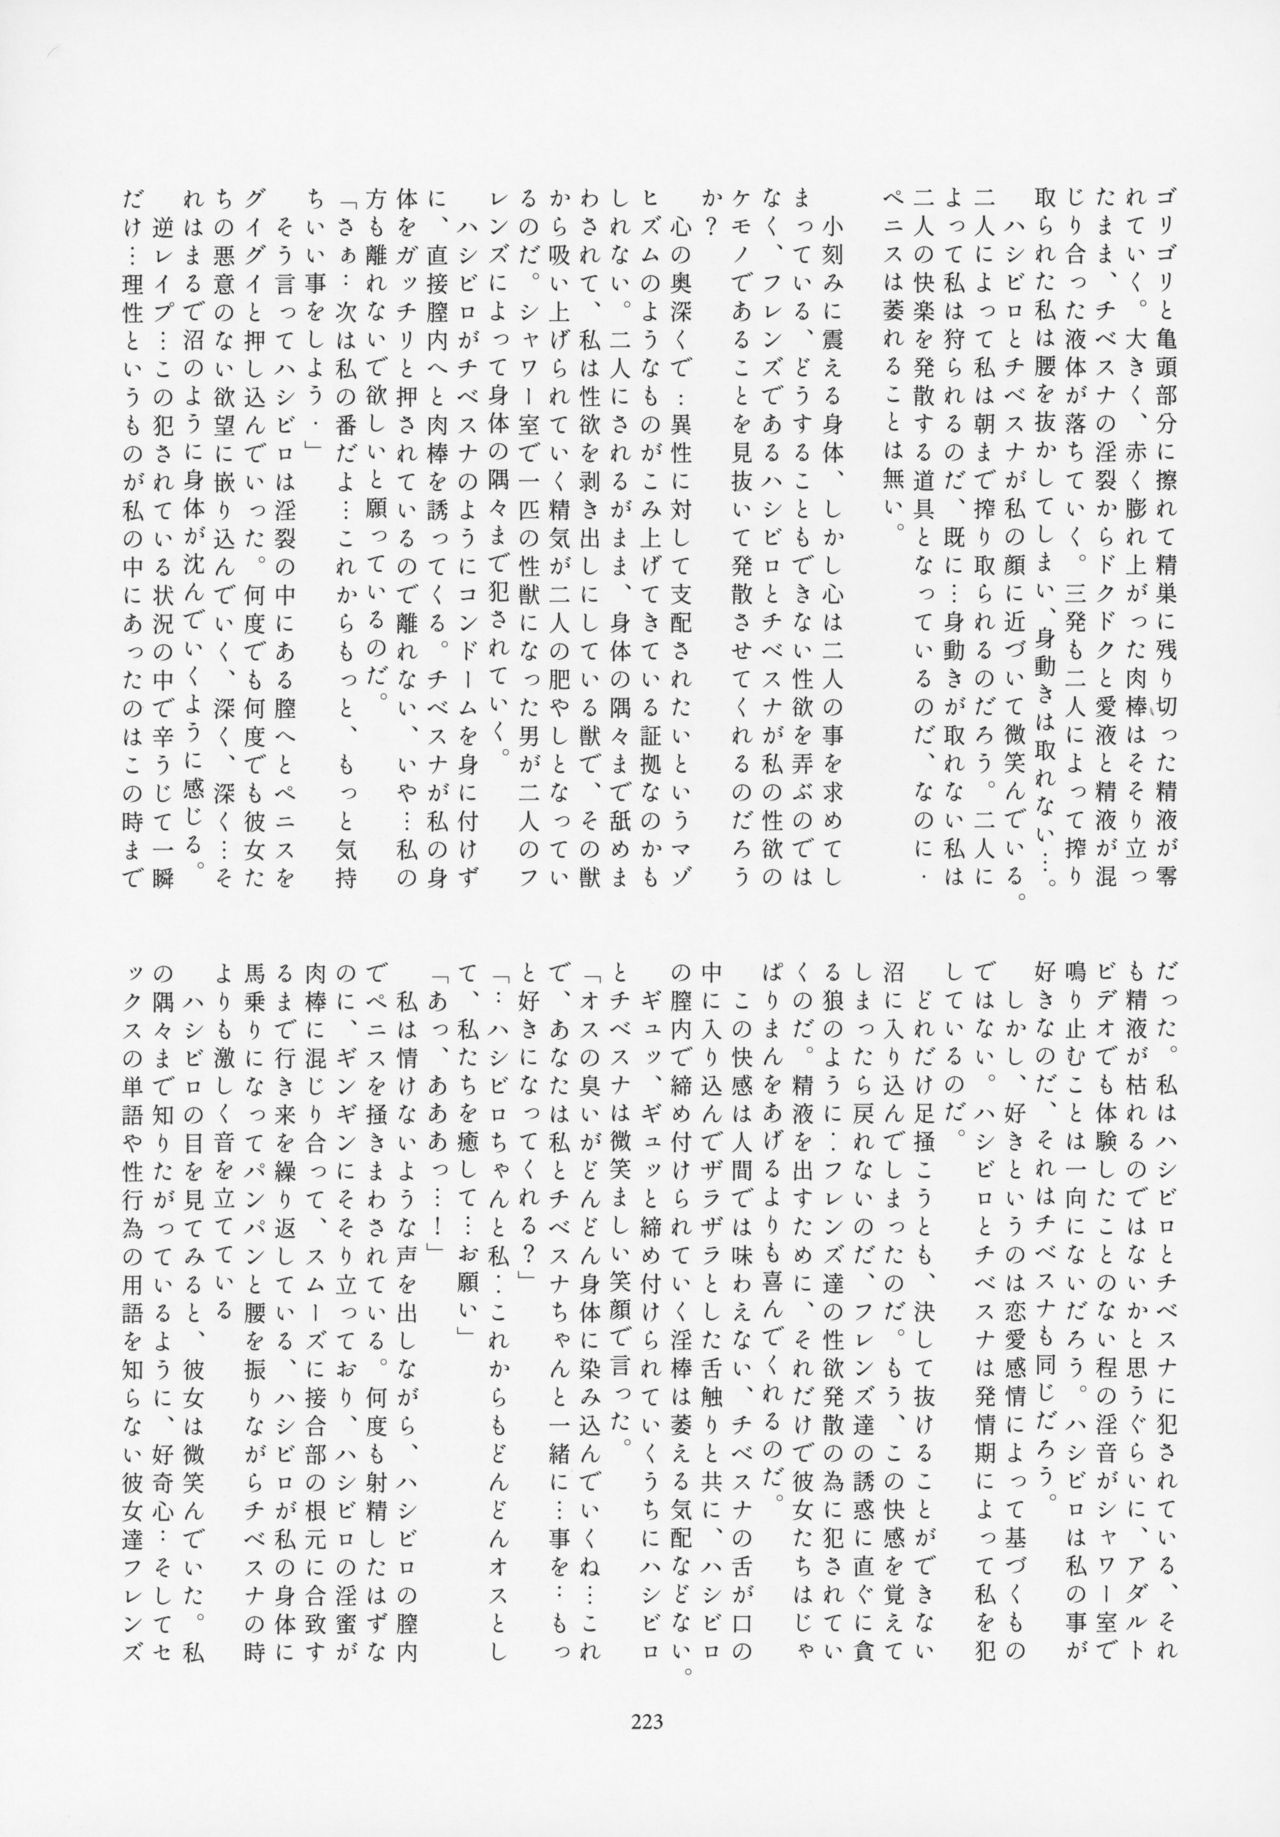 ゴリゴリと亀頭部分に擦れて精巣に残り切った精液が零
れていく。大きく、赤く膨れ上がった肉棒はそそり立っ
たまま、チベスナの淫裂からドクドクと愛液と精液が混
じり合った液体が落ちていく。三発も二人によって搾り
取られた私は腰を抜かしてしまい、身動きは取れない…。
ハシビロとチベスナが私の顔に近づいて微笑んでいる。
二人によって私は朝まで搾り取られるのだろう。二人に
よって私は狩られるのだ、既に…身動きが取れない私は
二人の快楽を発散する道具となっているのだ、なのに‥
ペニスは萎れることは無い。
小刻みに震える身体、しかし心は二人の事を求めてし
まっている、どうすることもできない性欲を弄ぶのでは
なく、フレンズであるハシビロとチベスナが私の性欲の
ケモノであることを見抜いて発散させてくれるのだろう
か？
心の奥深くで…異性に対して支配されたいというマゾ
ヒズムのようなものがこみ上げてきている証拠なのかも
しれない。二人にされるがまま、身体の隅々まで舐めま
わされて、私は性欲を剥き出しにしている獣で、その獣
から吸い上げられていく精気が二人の肥やしとなってい
るのだ。シャワー室で一匹の性獣になった男が二人のフ
レンズによって身体の隅々まで犯されていく。
ハシビロがチベスナのようにコンドームを身に付けず
に、直接膣内へと肉棒を誘ってくる。チベスナが私の身
体をガッチリと押されているので離れない、いや…私の
方も離れないで欲しいと願っているのだ。
「さぁ…次は私の番だよ…これからもっと、もっと気持
ちいい事をしよう‥」
そう言ってハシビロは淫裂の中にある膣へとペニスを
グイグイと押し込んでいった。何度でも何度でも彼女た
ちの悪意のない欲望に嵌り込んでいく、深く、深く…そ
れはまるで沼のように身体が沈んでいくように感じる。
逆レイプ…この犯されている状況の中で辛うじて一瞬
だけ…理性というものが私の中にあったのはこの時まで
だった。私はハシビロとチベスナに犯されている、それ
も精液が枯れるのではないかと思うぐらいに、アダルト
ビデオでも体験したことのない程の淫音がシャワー室で
鳴り止むことは一向にないだろう。ハシビロは私の事が
好きなのだ、それはチベスナも同じだろう。
しかし、好きというのは恋愛感情によって基づくもの
ではない。ハシビロとチベスナは発情期によって私を犯
しているのだ。
どれだけ足掻こうとも、決して抜けることができない
沼に入り込んでしまったのだ。もう、この快感を覚えて
しまったら戻れないのだ、フレンズ達の誘惑に直ぐに貪
る狼のように‥フレンズ達の性欲発散の為に犯されてい
くのだ。精液を出すために、それだけで彼女たちはじゃ
ぱりまんをあげるよりも喜んでくれるのだ。
この快感は人間では味わえない、チベスナの舌が口の
中に入り込んでザラザラとした舌触りと共に、ハシビロ
の膣内で締め付けられていく淫棒は萎える気配などない。
ギュッ、ギュッと締め付けられていくうちにハシビロ
とチベスナは微笑ましい笑顔で言った。
「オスの臭いがどんどん身体に染み込んでいくね…これ
で、あなたは私とチベスナちゃんと一緒に…事を…もっ
と好きになってくれる？」
「…ハシビロちゃんと私‥これからもどんどんオスとし
て、私たちを癒して…お願い」
「あっ、あああっ…！」
私は情けないような声を出しながら、ハシビロの膣内
でペニスを掻きまわされている。何度も射精したはずな
のに、ギンギンにそそり立っており、ハシビロの淫蜜が
肉棒に混じり合って、スムーズに接合部の根元に合致す
るまで行き来を繰り返している、ハシビロが私の身体に
馬乗りになってパンパンと腰を振りながらチベスナの時
よりも激しく音を立てている
ハシビロの目を見てみると、彼女は微笑んでいた。私
の隅々まで知りたがっているように、好奇心…そしてセ
ックスの単語や性行為の用語を知らない彼女達フレンズ
223